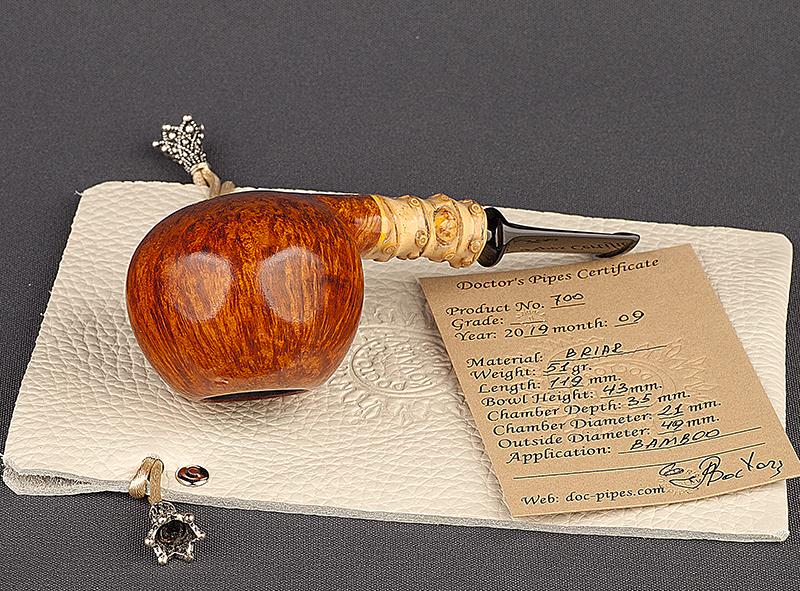 Doctor's Pipes Certificate
Product No. 700
Grade:
Year: 2019 month: 09
Material: BRIAR
Weight: 51 gr.
Length: 119 mm.
Bowl Height: 43 mm.
Chamber Depth: 35 mm.
Chamber Diameter: 21 mm.
Outside Diameter: 49 mm.
Application: BAMBOO
Doc Yang
Web: doc-pipes.com